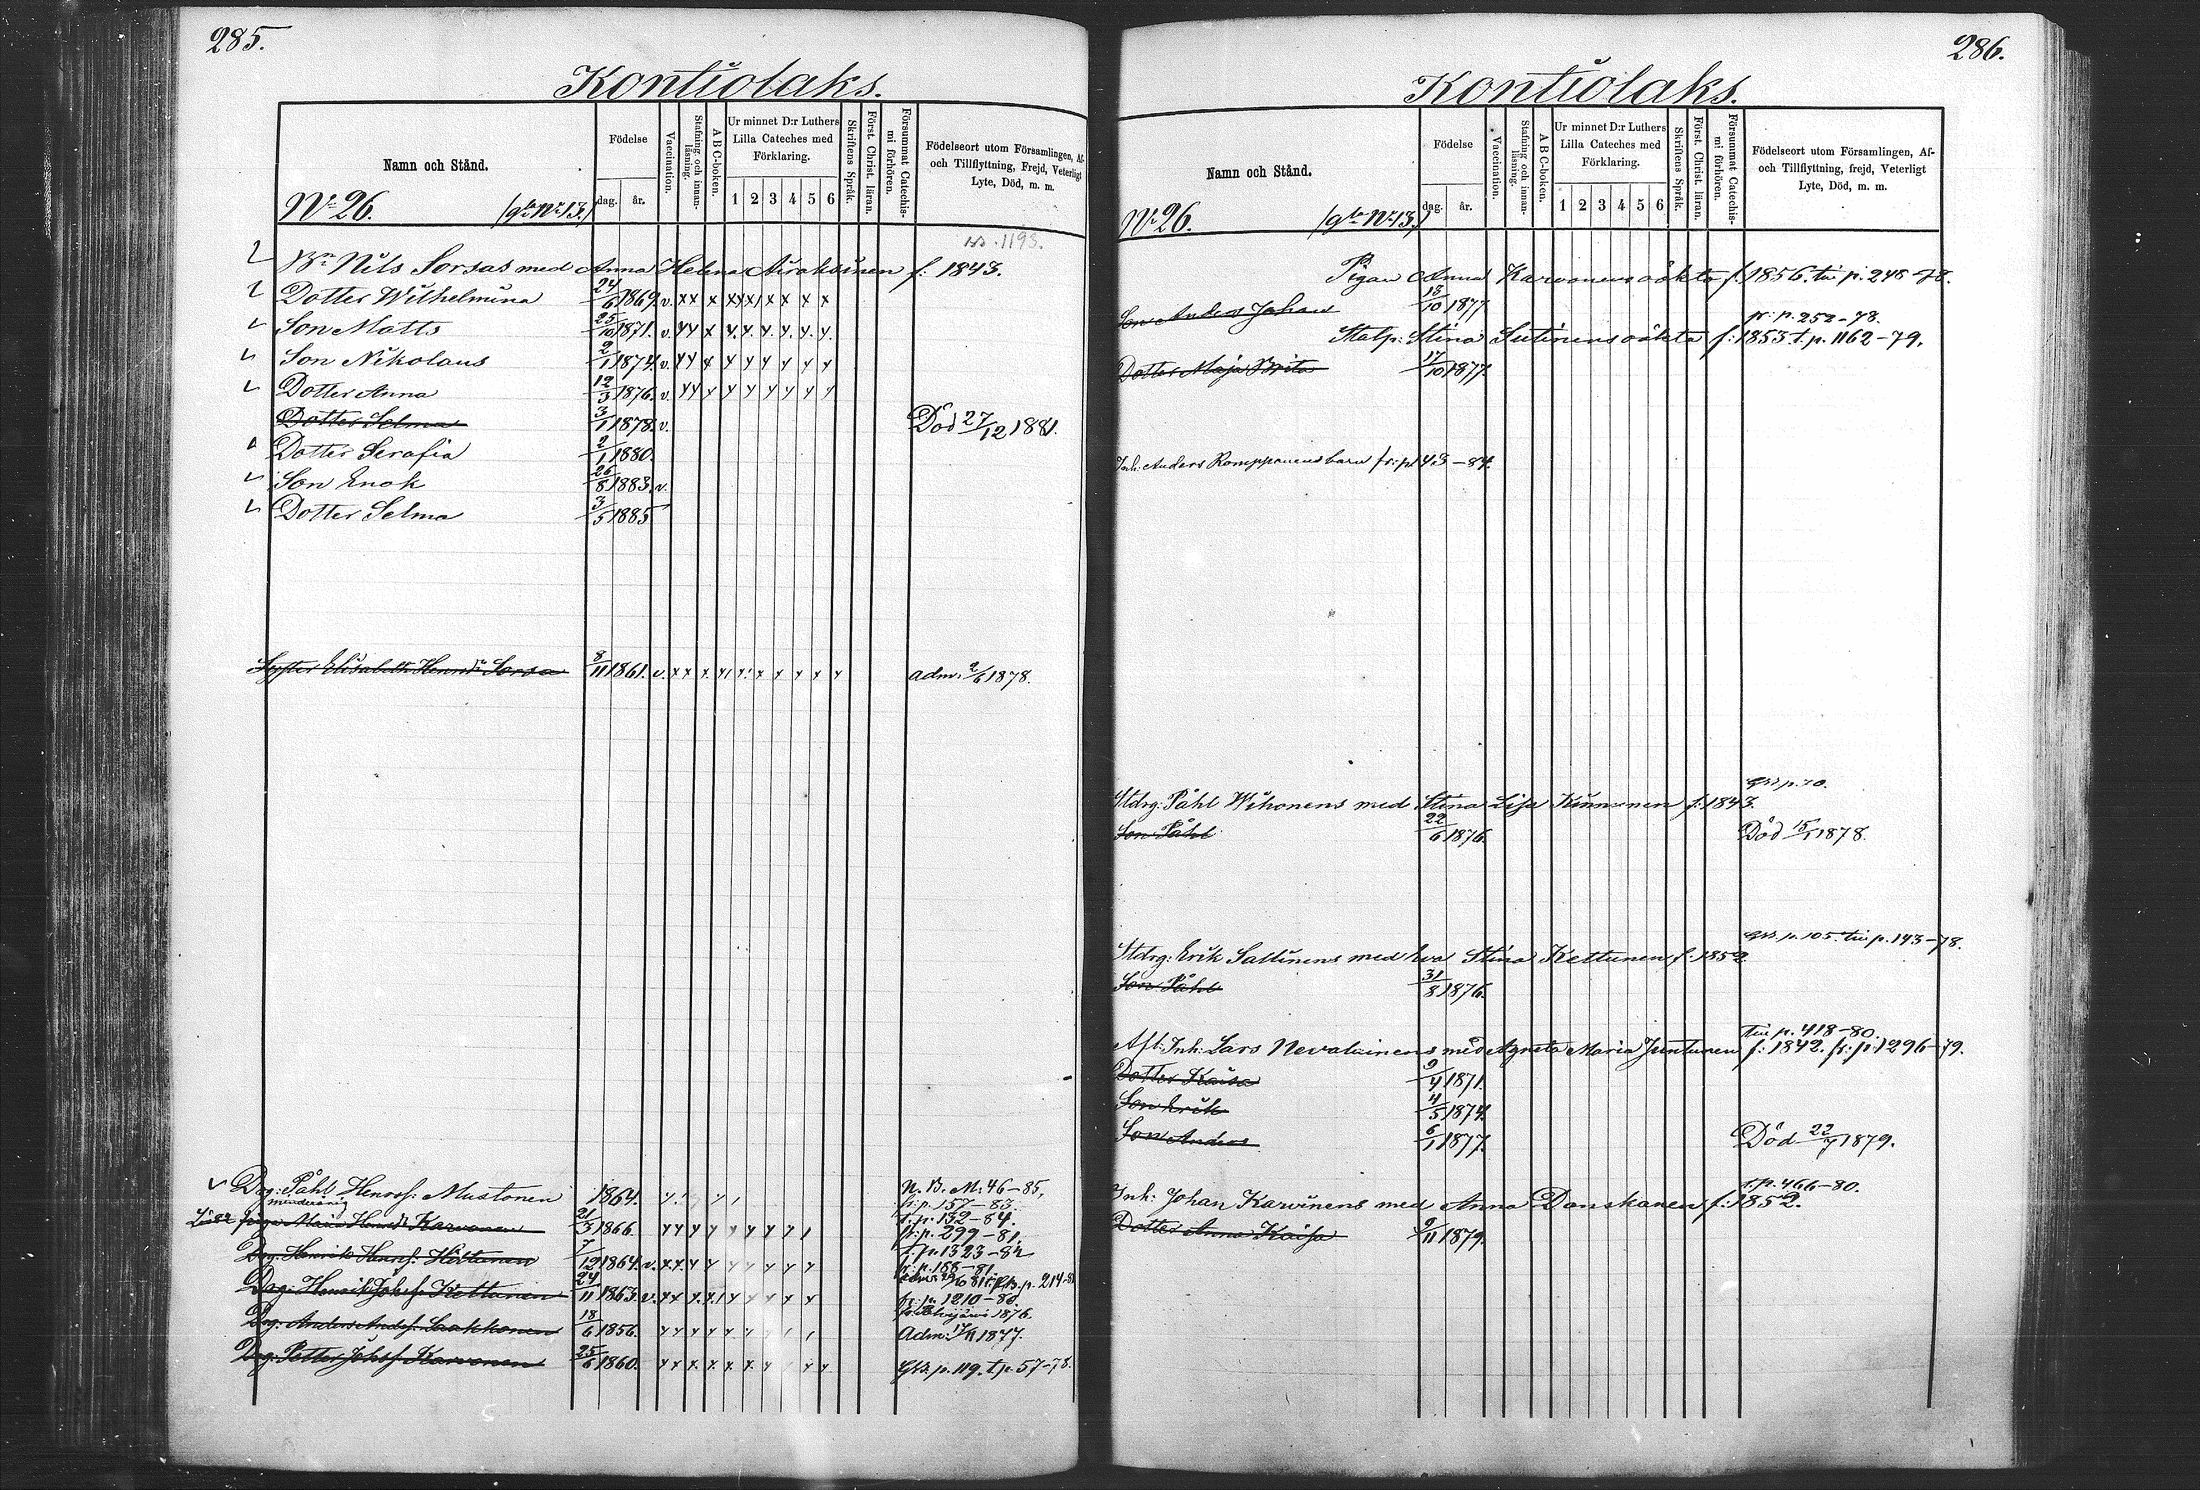 285.
Kontiolaks.
Namn och Stånd.
Födelse
dag. år.
Vaccination.
Stafning och innanläsning.
A B C-boken.
Ur minnet D:r Luthers Lilla Cateches med Förklaring.
1 2 3 4 5 6
Skriftens Språk.
Först. Christ. läran.
Försummat Catechismi förhören.
Födelseort utom Församlingen, Af- och Tillflyttning, Frejd, Veterligt Lyte, Död, m. m.
No 26. (gla No 13.)
1193.
Bn Nils Sorsas med Anna Helena Airaksinen f: 1843.
Dotter Wilhelmina 24/6 1869. v. x x x x x x x x x
Son Matts 25/10 1871. v. x x x x. x. x. x. x. x.
Son Nikolaus 2/1 1874. v. x x x x x x x x x
Dotter Anna 12/3 1876. v. x x x x x x x x x
Dotter Selma 3/1 1878. v. Död 27/12 1881.
Dotter Serafia 2/1 1880.
Son Enok 26/8 1883. v.
Dotter Selma 3/5 1885
Syster Elisabeth Henrsdr Sorsa 8/11 1861. v. x x x x x x x x x adm. 2/6 1878.
Drg: Påhl Henrsf: Mustonen 1864. N. B. M: 46-85,
minderårig fr: p. 157-83.
Pigan Maria Henrsdr Karvonen 21/3 1866. x x x x x x x x t. p. 132-84.
fr: p. 299-81.
Drg: Henrik Henrsf. Höttönen 7/12 1864. v. x x x x x x x x x t. p. 1323-82
fr: p. 188-81.
Drg: Henrik Johsf. Kettunen 24/11 1863. v. x x x x x x x x x p. 214-8
fr: p. 1210-80.
Drg: Anders Andsf. Saakkonen 18/6 1856. 1876.
Adm: 17/11 1877.
Drg: Petter Johsf. Karvonen 25/6 1860. p. 119. t. p. 57-78.
286.
Kontiolaks.
Namn och Stånd.
Födelse
dag. år.
Vaccination.
Stafning och innanläsning.
A B C-boken.
Ur minnet D:r Luthers Lilla Cateches med Förklaring.
1 2 3 4 5 6
Skriftens Språk.
Först. Christ. läran.
Försummat Catechismi förhören.
Födelseort utom Församlingen, Af- och Tillflyttning, frejd, Veterligt Lyte, Död, m. m.
No 26. (gla No 13.)
Pigan Anna Karvonens oäkta f. 1856. till p. 248-78.
Son Anders Johan 13/10 1877
fr: p. 252-78.
Stalp: Stina Sutinens oäkta f: 1853 t. p. 1162-79.
Dotter Maja Brita 17/10 1877.
Inh: Anders Romppanens barn fr: p 143-84.
p. 70.
Stdrg: Påhl Wihonens med Stina Lisa Kinnunen f: 1843.
Son Påhl 22/6 1876. Död 15/1 1878.
p. 105. till p. 143-78.
Stdrg: Erik Sallinens med Eva Stina Kettunen f: 1852
Son Påhl 31/8 1876.
till p. 418-80.
Afl. Inh: Lars Nevalainens med Agneta Maria Juntunen f: 1842. fr: p. 1296-79.
Dotter Kaisa 9/4 1871.
Son Erik 4/5 1874.
Son Anders 6/1 1877. Död 22/7 1879.
t. p. 466-80.
Inh: Johan Karvinens med Anna Danskanen f: 1852.
Dotter Anna Kaisa 9/11 1879.